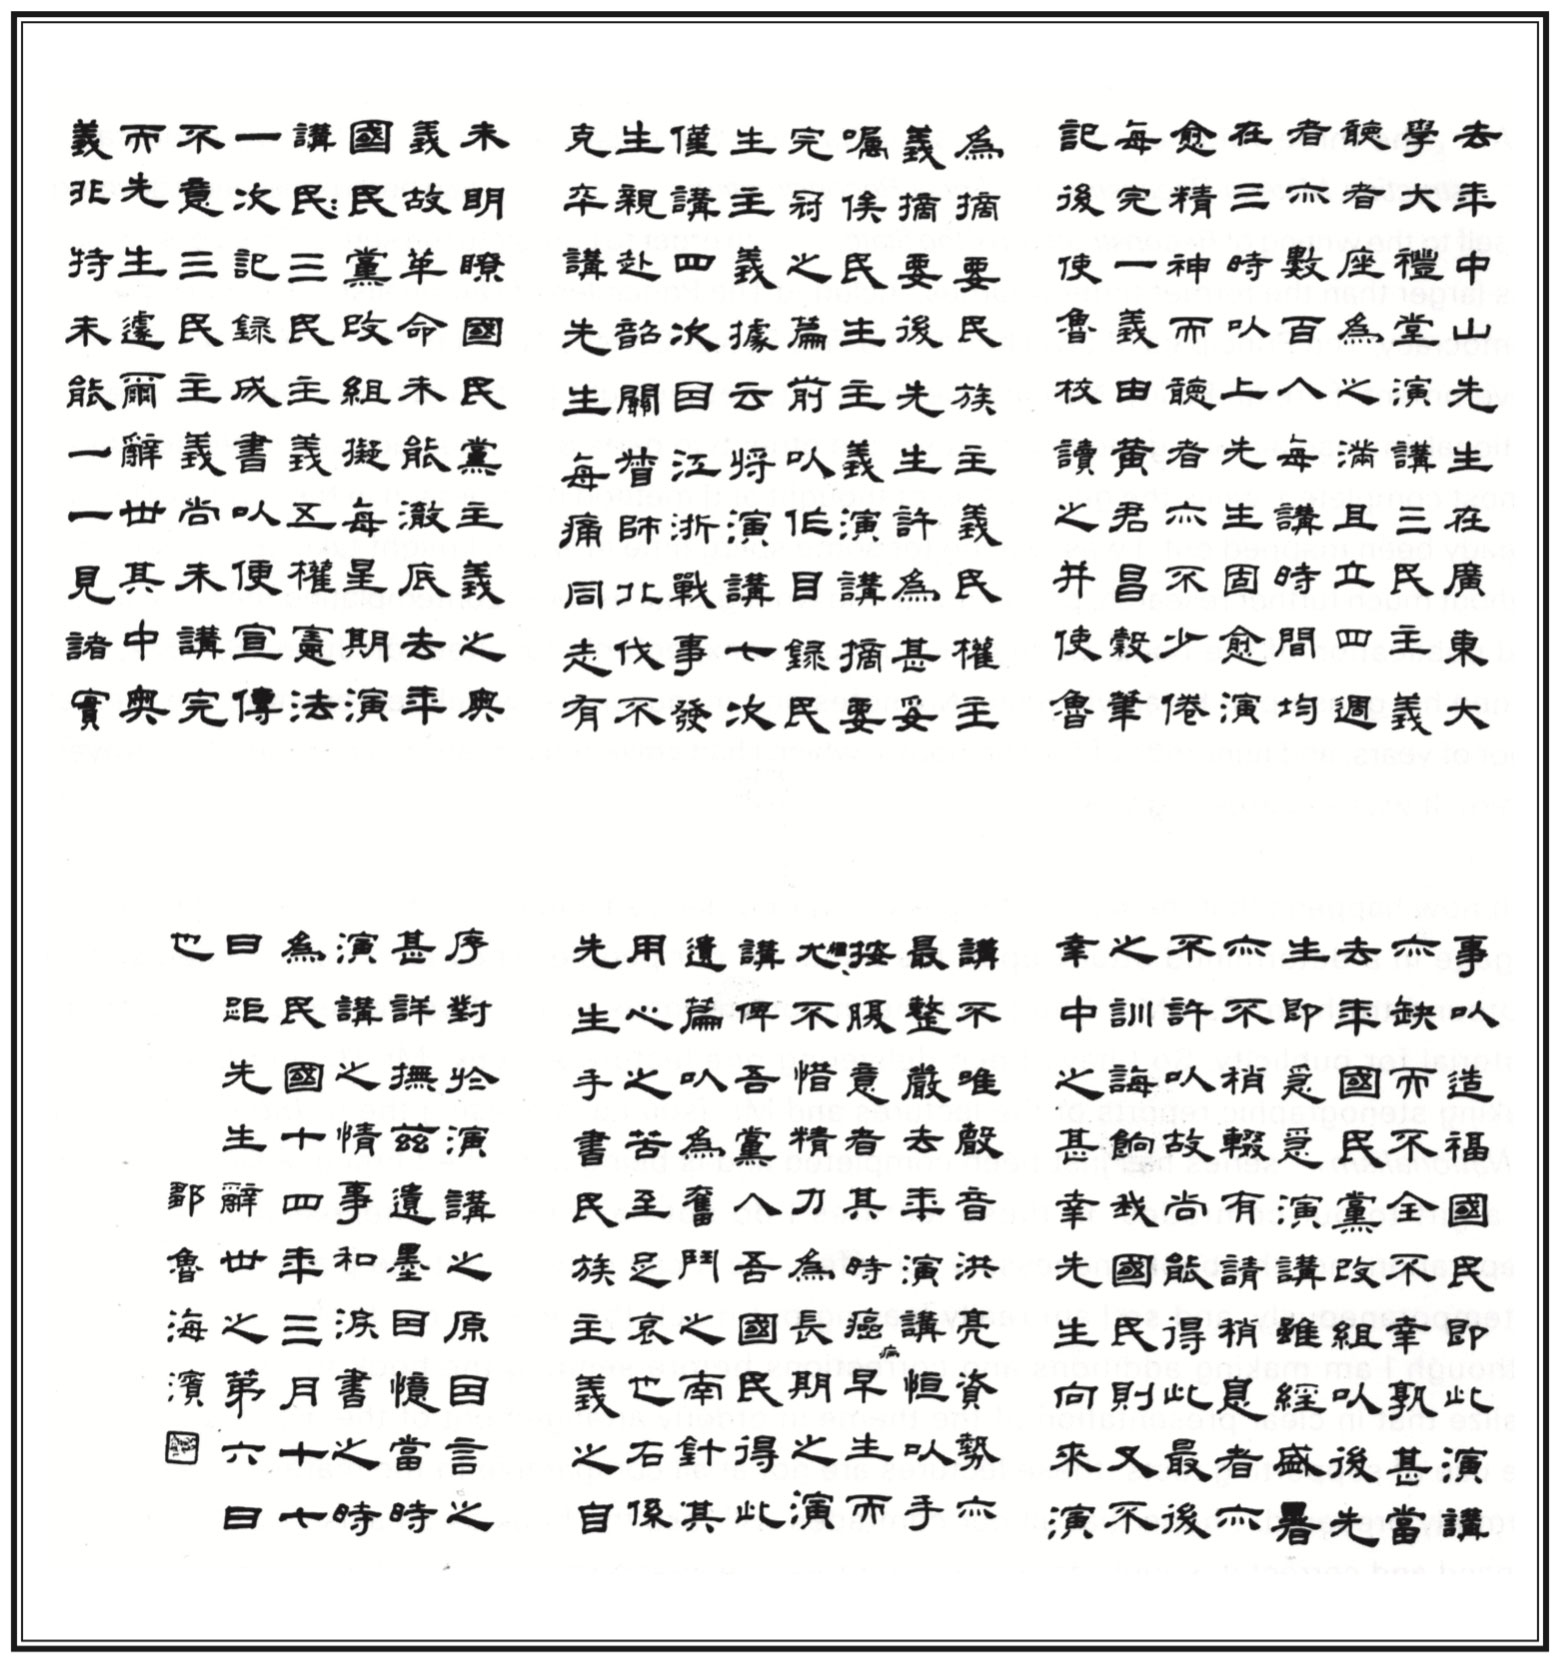 去年中山先生在廣東大
學大禮堂演講三民主義
聽者座為之滿且立四週
者亦數百人每講時間均
在三時以上先生固愈演
愈精神而聽者亦不少倦
每完一義由黃君昌穀筆
記後使魯校讀之并使魯
為摘要民族主義民權主
義摘要後先生許為甚妥
囑俟民生主義演講摘要
完冠之篇前以作目錄民
生主義據云將演講七次
僅講四次因江浙戰事發
生親赴韶關督師北伐不
克卒講先生每痛同志有
未明瞭國民黨主義之奧
義故革命未能澈底去年
國民黨改組擬每星期演
講民三民主義五權憲法
一次記錄成書以便宣傳
不意三民主義尚未講完
而先生遽爾辭世其中奧
義非特未能一一見諸實
事以造福國民即此演講
亦缺而不全不幸孰甚當
去年國民黨改組以後先
生即急急演講雖經盛暑
亦不稍輟有請稍息者亦
不許以故尚能得此最後
之訓誨餉我國民則又不
幸中之甚幸先生向來演
講不唯聲音洪亮資勢亦
最整嚴去年演講恒以手
按腹意者其時癌病早生而
猶尤不惜精力為長期之演
講俾吾黨人吾國民得此
遺篇以為奮鬥之南針其
用心之苦至足哀也右係
先生手書民族主義之自
序對於演講之原因言之
甚詳撫茲遺墨因憶當時
演講之情事和淚書之時
為民國十四年三月十七
日距先生辭世之第六日
也 鄒魯海濱